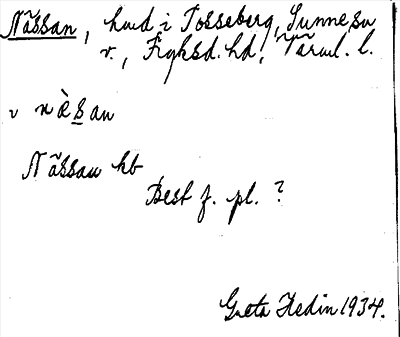 Nässan, hmd i Tosseberg, Sunne sn
v., Fryksd. hd, Värml. l.
v nὲsan
Nässan kb
Best f. pl. ?
Greta Hedin 1934.